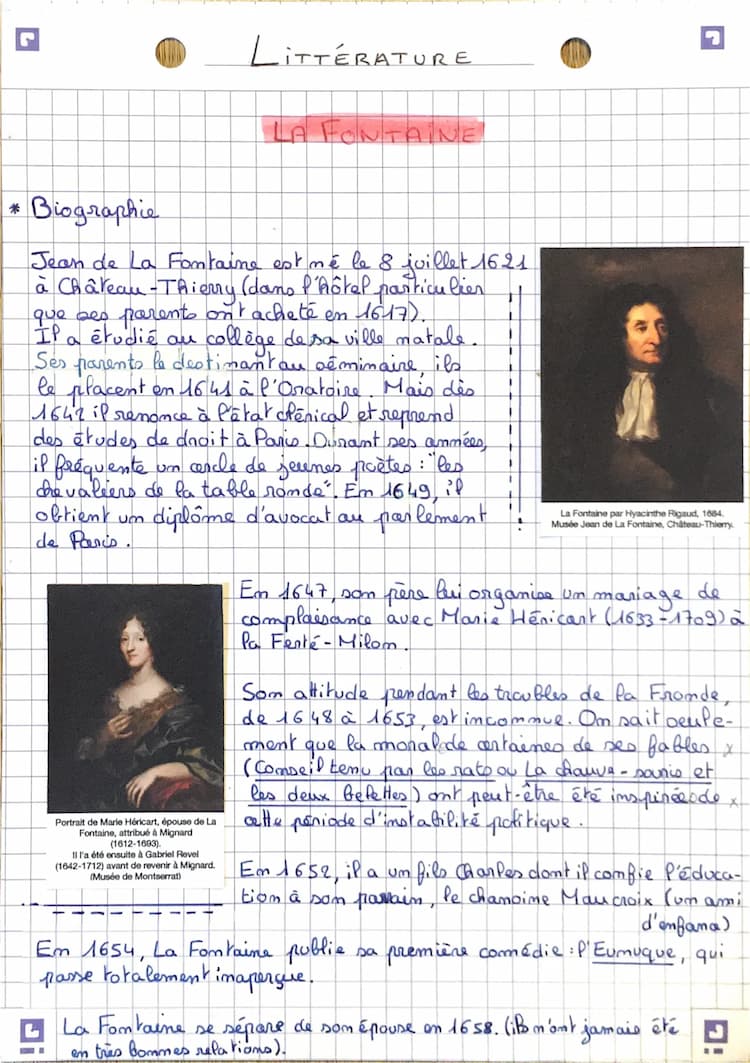 LITTÉRATURE
LA FONTAINE
* Biographie
Jean de La Fontaine est né le 8 juillet 1621
à Château-Thierry (dans l'hôtel particulier
que ses parents ont acheté en 1617).
Il a étudié au collège de sa ville natale.
Ses parents le destinant au séminaire, ils
le placent en 1641 à l'Oratoire. Mais dès
1642 il renonce à l'état clérical et reprend
des études de droit à Paris. Durant ses années,
il fréquente un cercle de jeunes poètes : "les
chevaliers de la table ronde". En 1649, il
obtient un diplôme d'avocat au parlement
de Paris.
La Fontaine par Hyacinthe Rigaud, 1684.
Musée Jean de La Fontaine, Château-Thierry.
En 1647, son père lui organise un mariage de
complaisance avec Marie Héricart (1633-1709) à
la Ferté-Milon.
Son attitude pendant les troubles de la Fronde,
de 1648 à 1653, est inconnue. On sait seule-
ment que la morale de certaines de ses fables x
(Conseil tenu par les rats ou La chauve-souris et
les deux belettes) ont peut-être été inspirées de x
cette période d'instabilité politique.
Portrait de Marie Héricart, épouse de La
Fontaine, attribué à Mignard
(1612-1693).
Il l'a été ensuite à Gabriel Revel
(1642-1712) avant de revenir à Mignard.
(Musée de Montserrat)
En 1652, il a un fils Charles dont il confie l'éduca-
tion à son parrain, le chanoine Maucroix (un ami
d'enfance)
En 1654, La Fontaine publie sa première comédie : l'Eunuque, qui
passe totalement inaperçue.
La Fontaine se sépare de son épouse en 1658. (ils n'ont jamais été
en très bonnes relations).